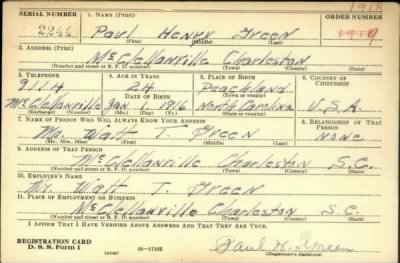 SERIAL NUMBER 1. NAME (Print) ORDER NUMBER
1918
Paul Henry Green 1919
(First) (Middle) (Last)
2. ADDRESS (Print)
McClellanville Charleston
(Number and street or R. F. D. number) (Town) (County) (State)
3. TELEPHONE 4. AGE IN YEARS 5. PLACE OF BIRTH 6. COUNTRY OF CITIZENSHIP
9114 24 Peachland
DATE OF BIRTH (Town or county)
McClellanville Jan 1 1916 North Carolina U.S.A
(Exchange) (Number) (Mo.) (Day) (Yr.) (State or country)
7. NAME OF PERSON WHO WILL ALWAYS KNOW YOUR ADDRESS 8. RELATIONSHIP OF THAT PERSON
Mr. Walt T. Green none
(Mr., Mrs., Miss) (First) (Middle) (Last)
9. ADDRESS OF THAT PERSON
McClellanville Charleston S.C.
(Number and street or R. F. D. number) (Town) (County) (State)
10. EMPLOYER'S NAME
Mr. Walt T. Green
11. PLACE OF EMPLOYMENT OR BUSINESS
McClellanville Charleston S.C.
(Number and street or R. F. D. number) (Town) (County) (State)
I AFFIRM THAT I HAVE VERIFIED ABOVE ANSWERS AND THAT THEY ARE TRUE.
REGISTRATION CARD
D. S. S. Form 1 (over) 16—17105 Paul H. Green
(Registrant's signature)